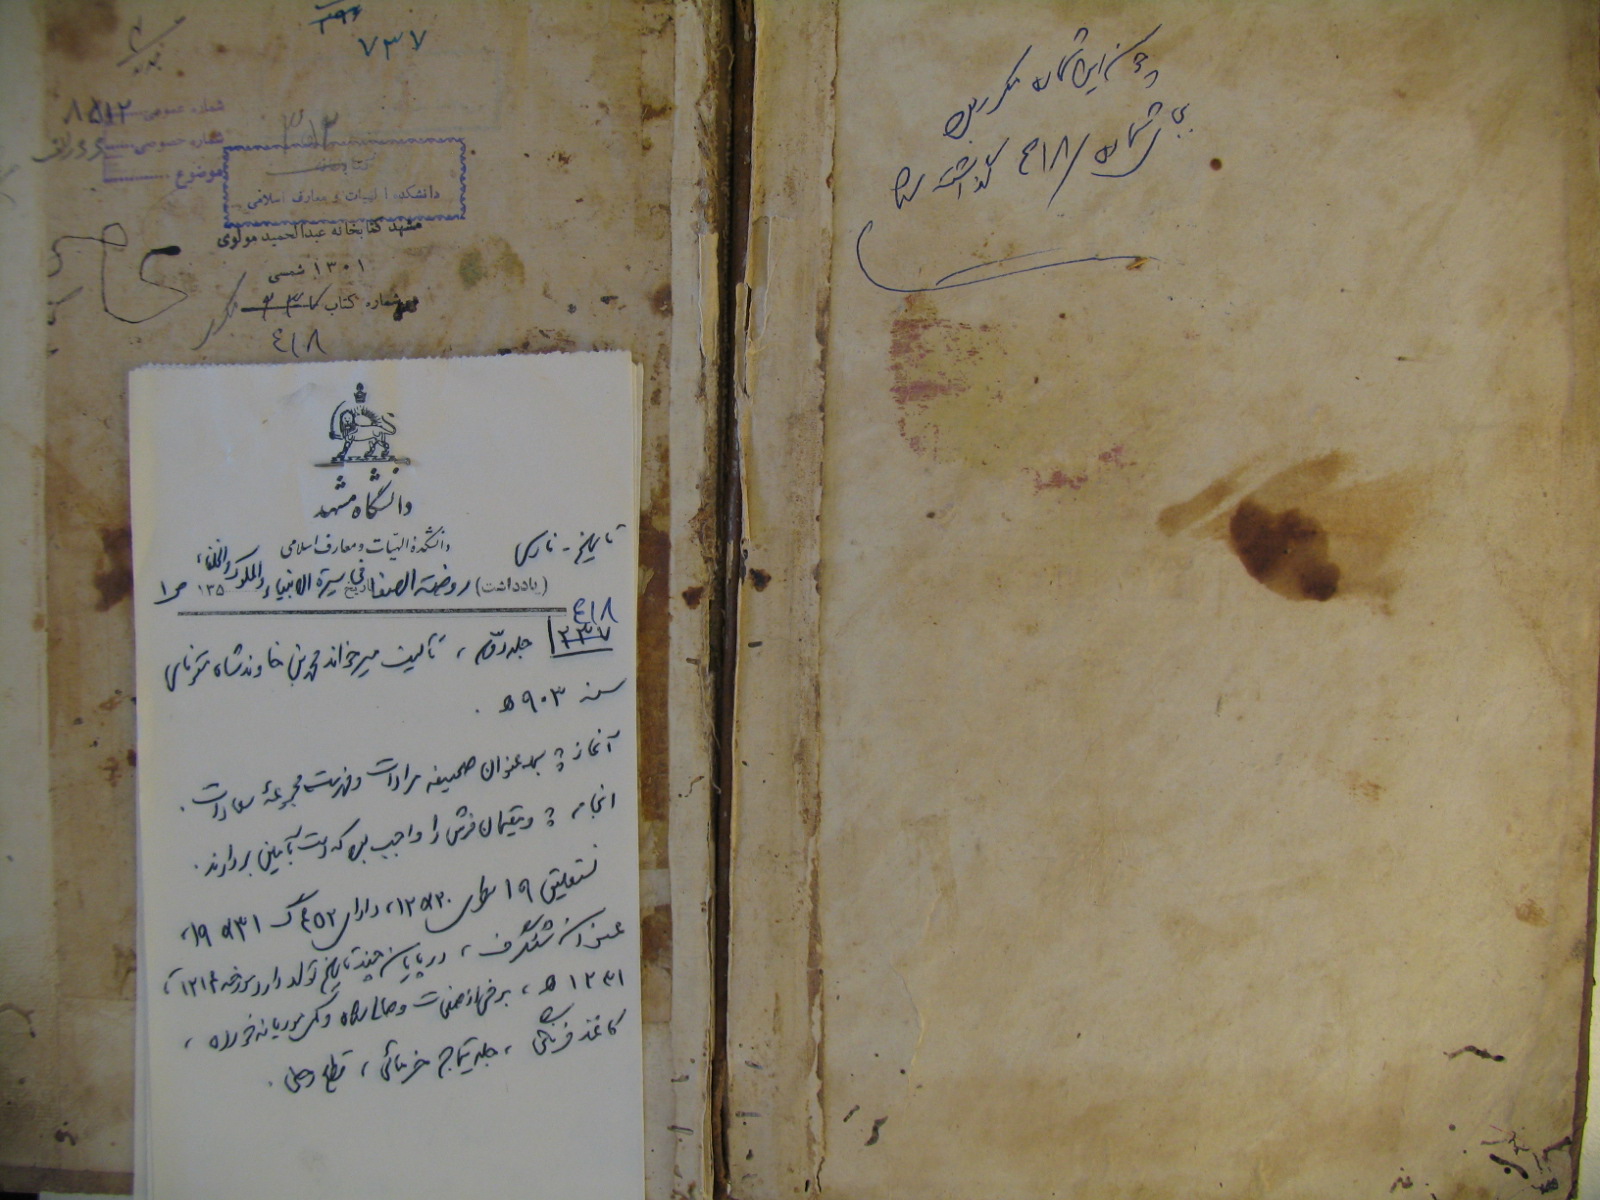 ۷۳۷
شماره عمومی ۸۵۱۲
شماره خصوصی
موضوع
۳۱۲
کتابخانه
دانشکده الهیات و معارف اسلامی
مشهد کتابخانه عبدالحمید مولوی
۱۳۰۱ شمسی
شماره کتاب ۲۳۷ مکرر
۴۱۸
چون این شماره مکرر بود
شماره ۴۱۸ گذاشته شد
دانشگاه مشهد
دانشکدهٔ الهیات و معارف اسلامی
تاریخ - فارسی
(یادداشت) روضة الصفا فی سیرة الانبیاء والملوک والخلفاء تاریخ ۱۳۵ ص ۱
۴۱۸
۲۳۷ جلد دوم ، تألیف میرخواند محمد بن خاوندشاه متوفای
سنه ۹۰۳ ه .
آغاز : عنوان صحیفه مرادات و فهرست مجموعهٔ سعادات .
انجام : و مقیمان فرش را واجب بود که دست بآمین بردارند .
نستعلیق ۱۹ سطری ۲۰×۱۲، دارای ۴۵۲ گ ۳۱×۱۹،
عنوان شنگرف ، در پایان چند تاریخ تولد دارد مورخه ۱۲۱۴ تا
۱۲۳۱ ه ، برخی از صفحات وصالی شده و کمی موریانه خورده ،
کاغذ فرنگی ، جلد تیماج خرمائی ، قطع رحلی .